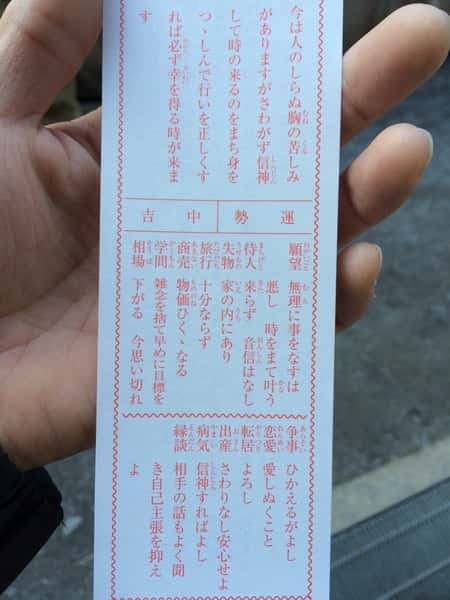 今は人のしらぬ胸の苦しみ
がありますがさわがず信神
して時の来るのをまち身を
つゝしんで行いを正しくす
れば必ず幸を得る時が来ま
す
運勢
中吉
願望 無理に事をなすは
悪し 時をまて叶う
待人 来らず 音信はなし
失物 家の内にあり
旅行 十分ならず
商売 物価ひくゝなる
学問 雑念を捨て早めに目標を
相場 下がる 今思い切れ
争事 ひかえるがよし
恋愛 愛しぬくこと
転居 よろし
出産 さわりなし安心せよ
病気 信神すればよし
縁談 相手の話もよく聞
き自己主張を抑え
よ